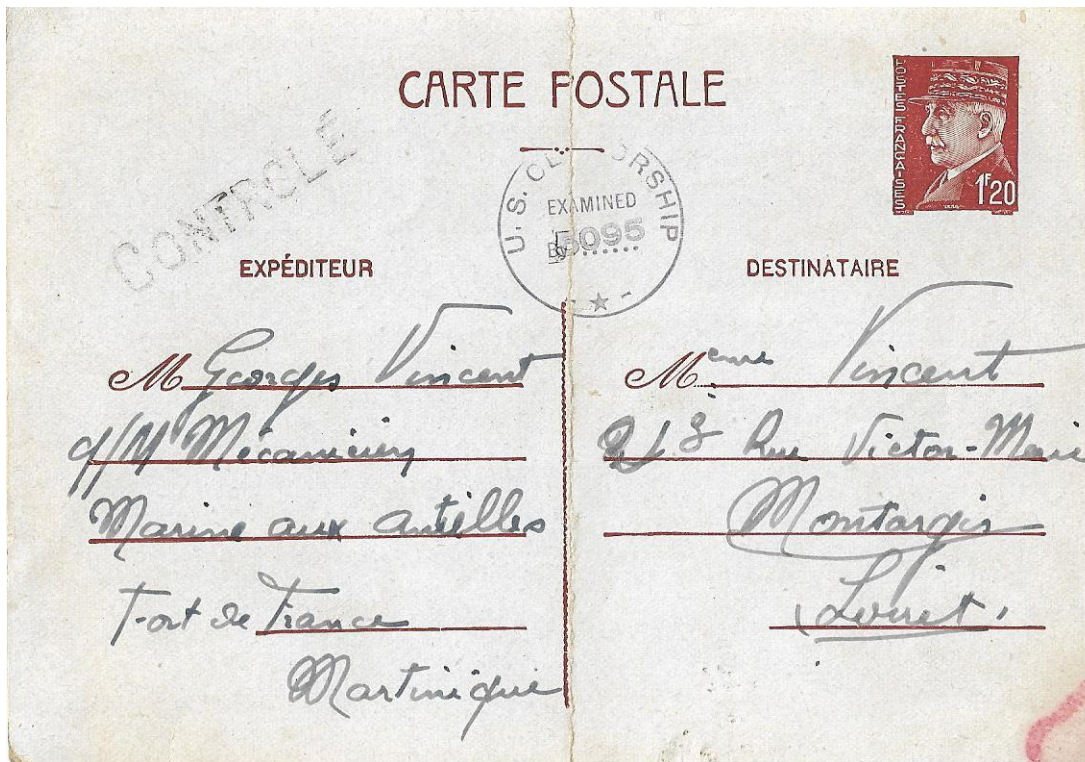 CARTE POSTALE
POSTES FRANÇAISES
1F20
CONTROLE
U.S. CENSORSHIP
EXAMINED
By 5095
EXPÉDITEUR
M Georges Vincent
q/M Mécanicien
Marine aux Antilles
Fort de France
Martinique
DESTINATAIRE
Mme Vincent
Rue Victor-Marie
Montargis
(Loiret)